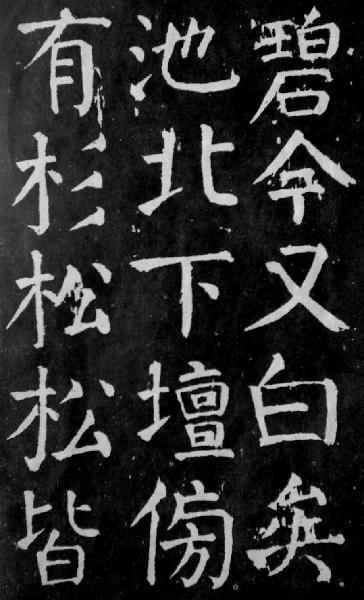 碧今又白矣
池北下壇傍
有杉松松皆